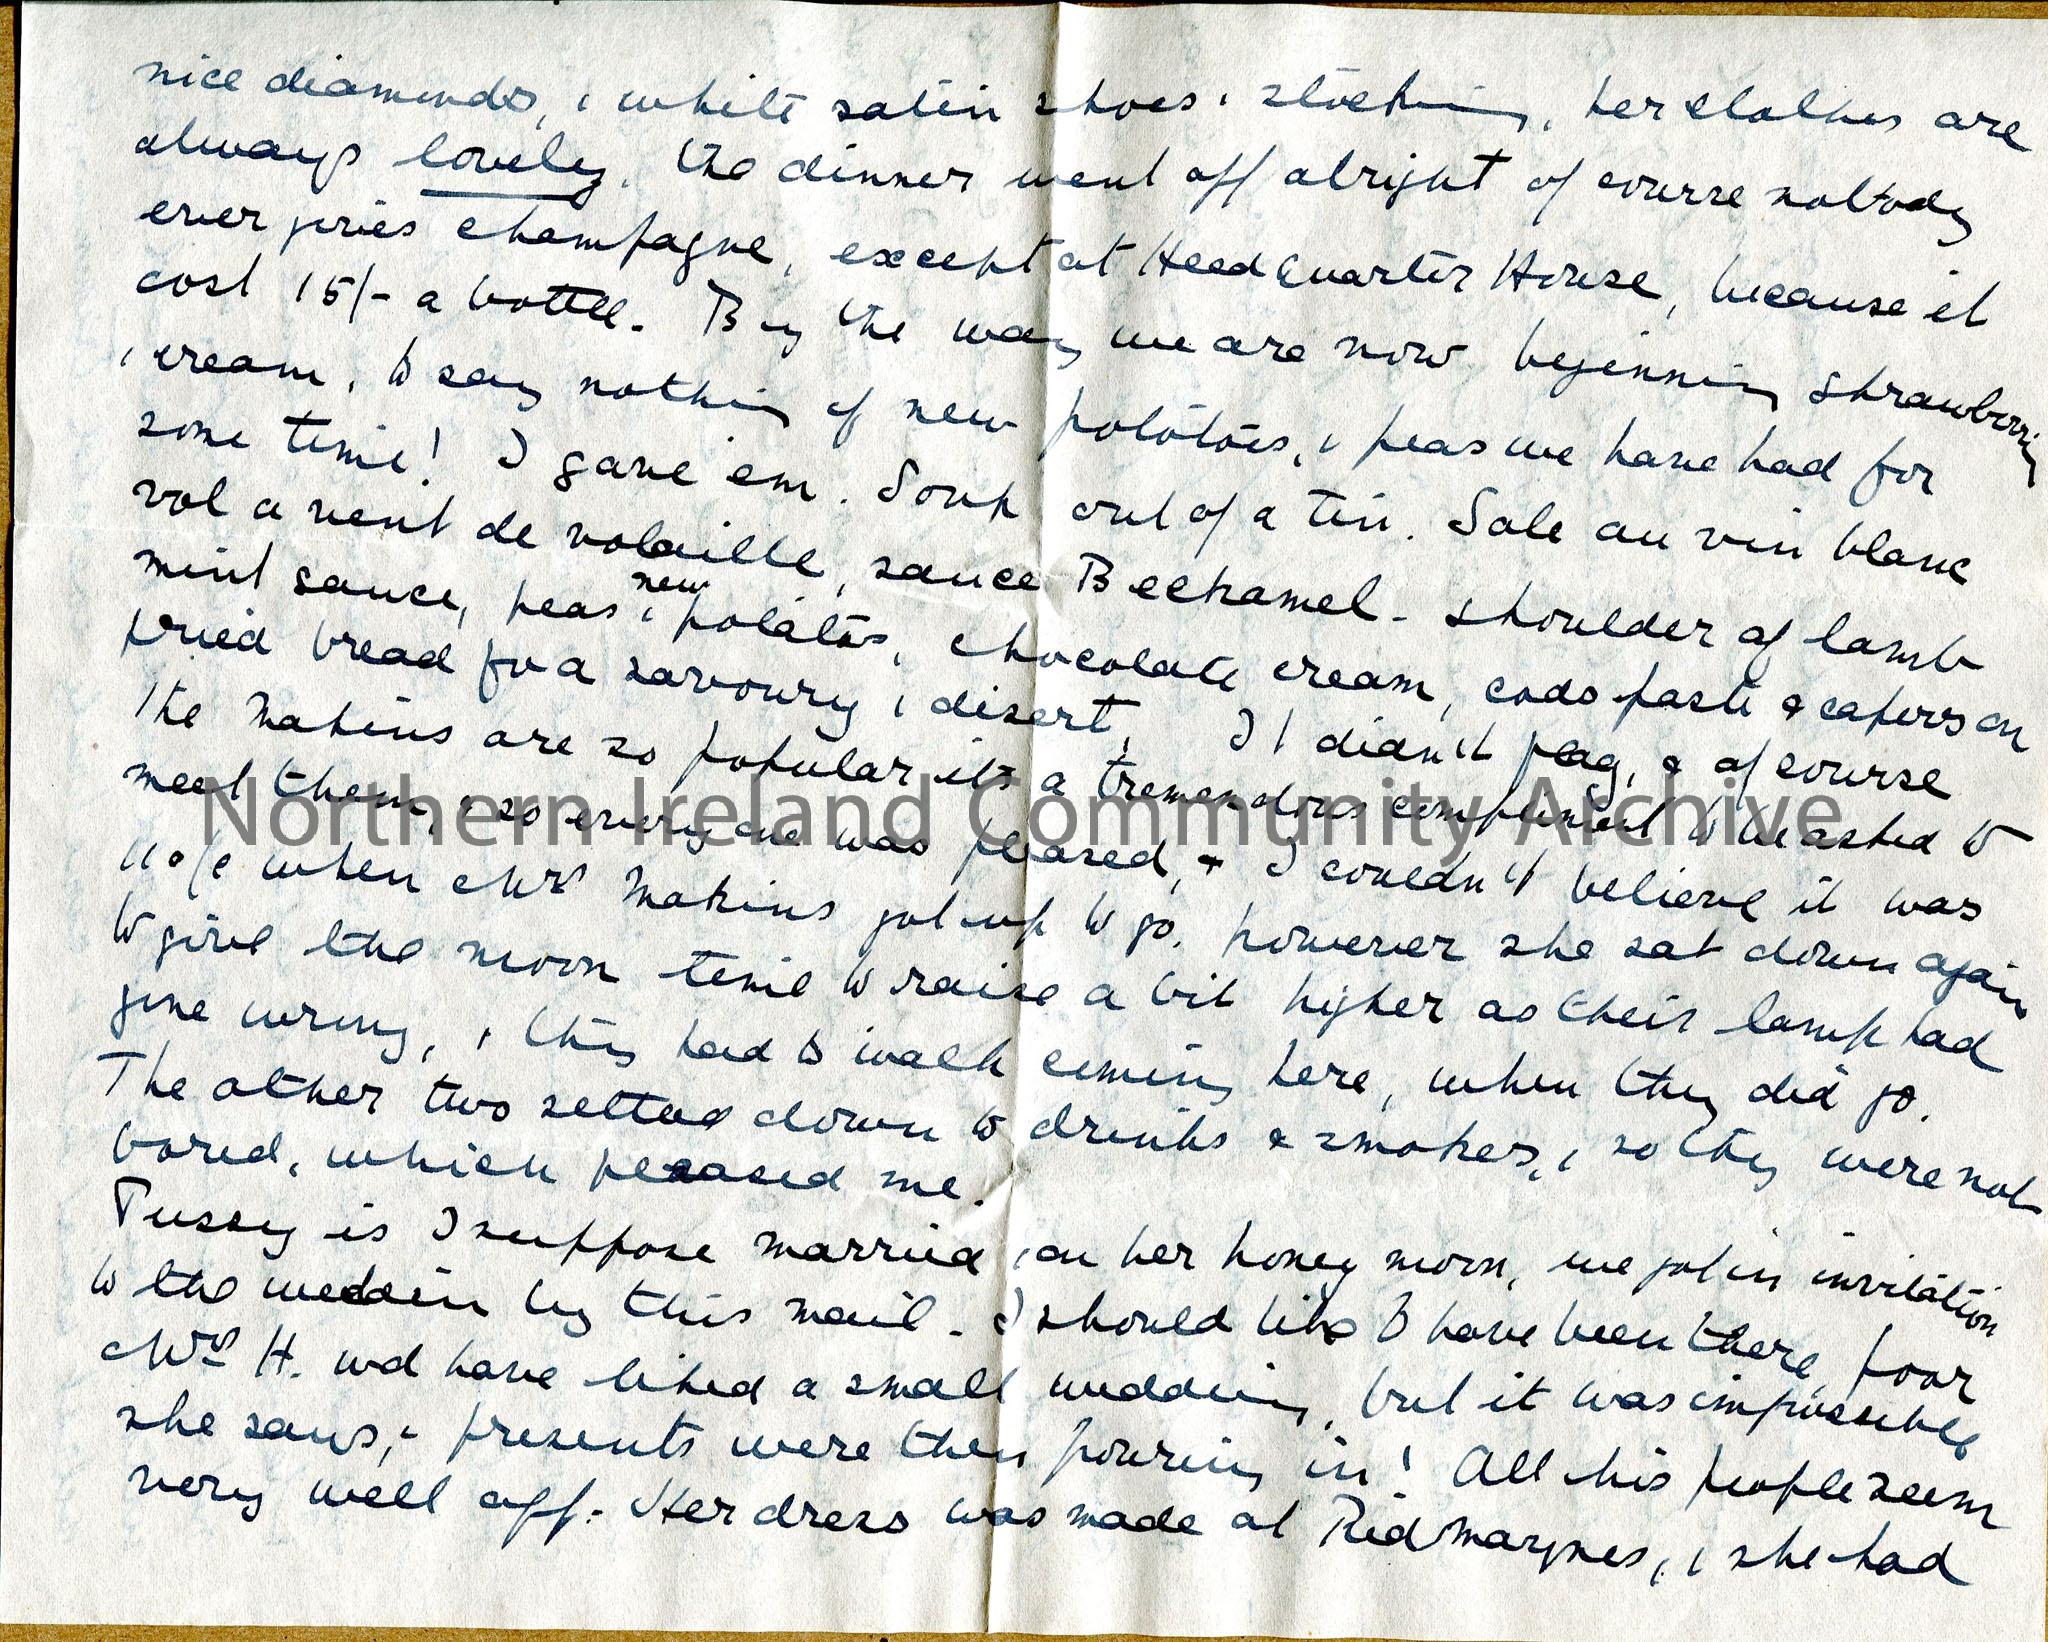 nice diamonds, & white satin shoes & stockings, her clothes are
always lovely. The dinner went off alright of course nobody
ever gives champagne, except at HeadQuarter House, because it
cost 15/- a bottle. By the way we are now beginning strawberries
& cream, to say nothing of new potatoes, & peas we have had for
some time! I gave em. Soup out of a tin. Sole au vin blanc
vol a vent de volaille, sauce Bechamel - shoulder of lamb
mint sauce, peas & new potatos, chocolate cream, cods paste & capers on
fried bread for a savoury & disert, It didn't flag, & of course
the Makins are so popular its a tremendous compliment to be asked to
meet them, & so every one was pleased, & I couldn't believe it was
when Mrs Makins got up to go. however she sat down again
to give the moon time to raise a bit higher as their lamp had
gone wrong, & they had to walk coming here, when they did go.
The other two setted down to drinks & smokes, & so they were not
bored, which pleased me.
Pussy is I suppose married & on her honey moon, we got in invitation
to the weddin by this mail. I should like to have been there, poor
Mrs H. wd have liked a small wedding, but it was impossible
she says, & presents were then pouring in! All his people seem
very well off. Her dress was made at RidMaynes, & she had
Northern Ireland Community Archive